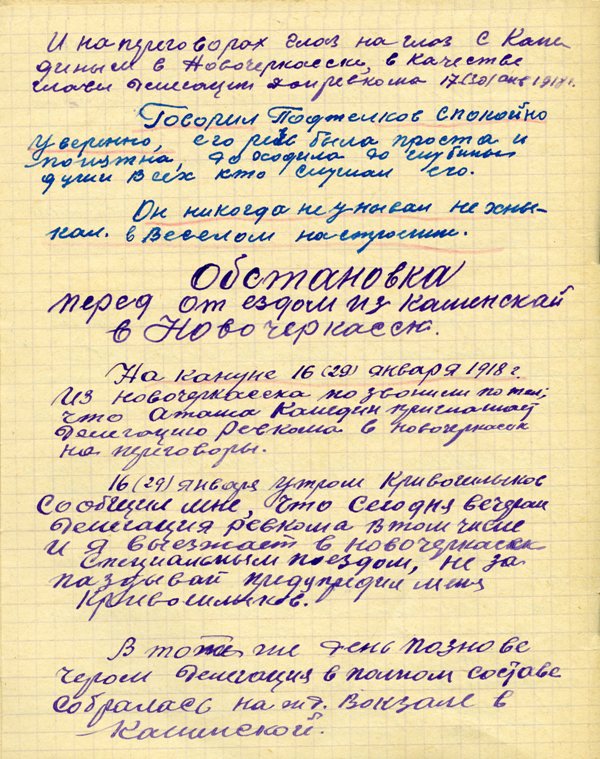 И на переговорах глаз на глаз с Кале
диным в Новочеркасске, в качестве
главы делегации Донревкома 17(30) янв 1918 г.
Говорил Подтелков спокойно
уверенно, его речь была проста и
понятна, доходила до глубины
души всех кто слушал его.
Он никогда не унывал не хны-
кал. в веселом настроении.
Обстановка
перед от ездом из Каменской
в Новочеркасск.
На кануне 16 (29) января 1918 г
из новочеркасска по звонили по тел;
что атаман Каледин приглашает
делегацию Ревкома в новочеркасск
на переговоры.
16 (29) января утром Кривошлыков
сообщил мне, что сегодня вечером
делегация ревкома в том числе
и я выезжает в новочеркасск
специальным поездом, не за
паздывай предупредил меня
Кривошлыков.
В тот же день поздно ве
чером делегация в полном составе
собралась на жд. вокзале в
Каменской.